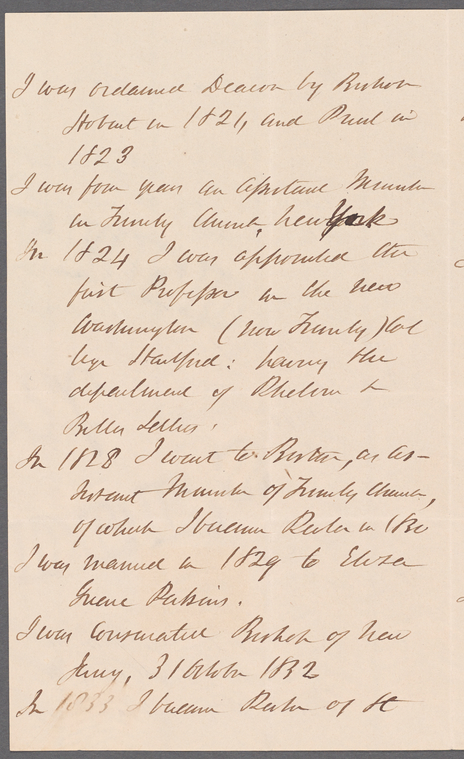 I was ordained Deacon by Bishop
Hobart in 1821, and Priest in
1823
I was four years an assistant Minister
in Trinity Church, New York
In 1824 I was appointed the
first Professor in the new
Washington (now Trinity) Col
lege Hartford: having the
department of Rhetoric &
Belles Lettres.
In 1828 I went to Boston, as as-
sistant Minister of Trinity Church,
of which I became Rector in 1830
I was married in 1829 to Eliza
Greene Perkins.
I was consecrated Bishop of New
Jersey, 31 October 1832
In 1833 I became Rector of St